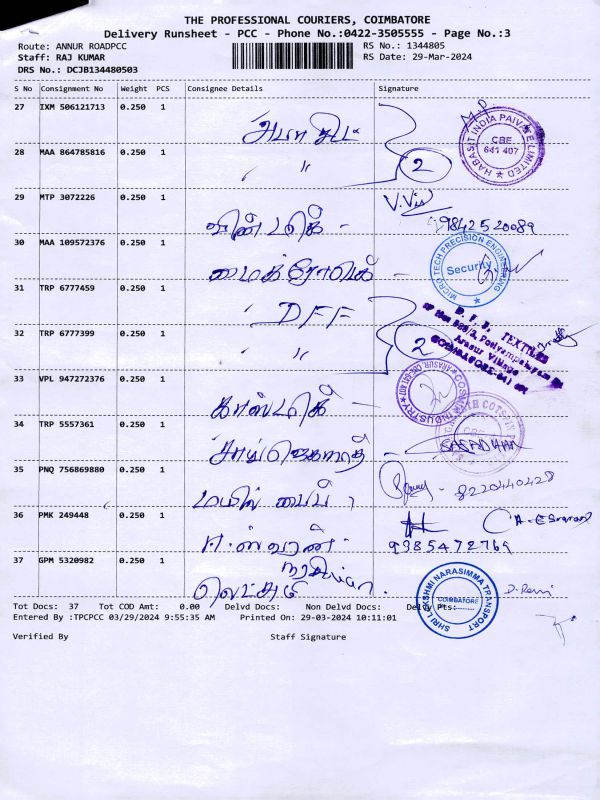 THE PROFESSIONAL COURIERS, COIMBATORE
Delivery Runsheet - PCC - Phone No.:0422-3505555 - Page No.:3
Route: ANNUR ROADPCC
RS No.: 1344805
Staff: RAJ KUMAR
RS Date: 29-Mar-2024
DRS No.: DCJB134480503
S No Consignment No Weight PCS Consignee Details Signature
27 IXM 506121713 0.250 1
HABASIT INDIA PAIVATE LIMITED
CBE
641 407
28 MAA 864785816 0.250 1
〃
2
29 MTP 3072226 0.250 1
9842520089
30 MAA 109572376 0.250 1
மைக்ரோடெக் -
MICRO TECH PRECISION ENGINEERING
Security
31 TRP 6777459 0.250 1
DFF
D. F. D. TEXTILES
Arasur Village
32 TRP 6777399 0.250 1
〃
2
33 VPL 947272376 0.250 1
COSMIC INDUSTRY
34 TRP 5557361 0.250 1
35 PNQ 756869880 0.250 1
மயில் பைப்
8220440428
36 PMK 249448 0.250 1
9385472769
37 GPM 5320982 0.250 1
லெட்சுமி
SHRI LAKSHMI NARASIMMA TRANSPORT
COIMBATORE
Tot Docs: 37 Tot COD Amt: 0.00 Delvd Docs: Non Delvd Docs: Delvy Pts:
Entered By :TPCPCC 03/29/2024 9:55:35 AM Printed On: 29-03-2024 10:11:01
Verified By Staff Signature